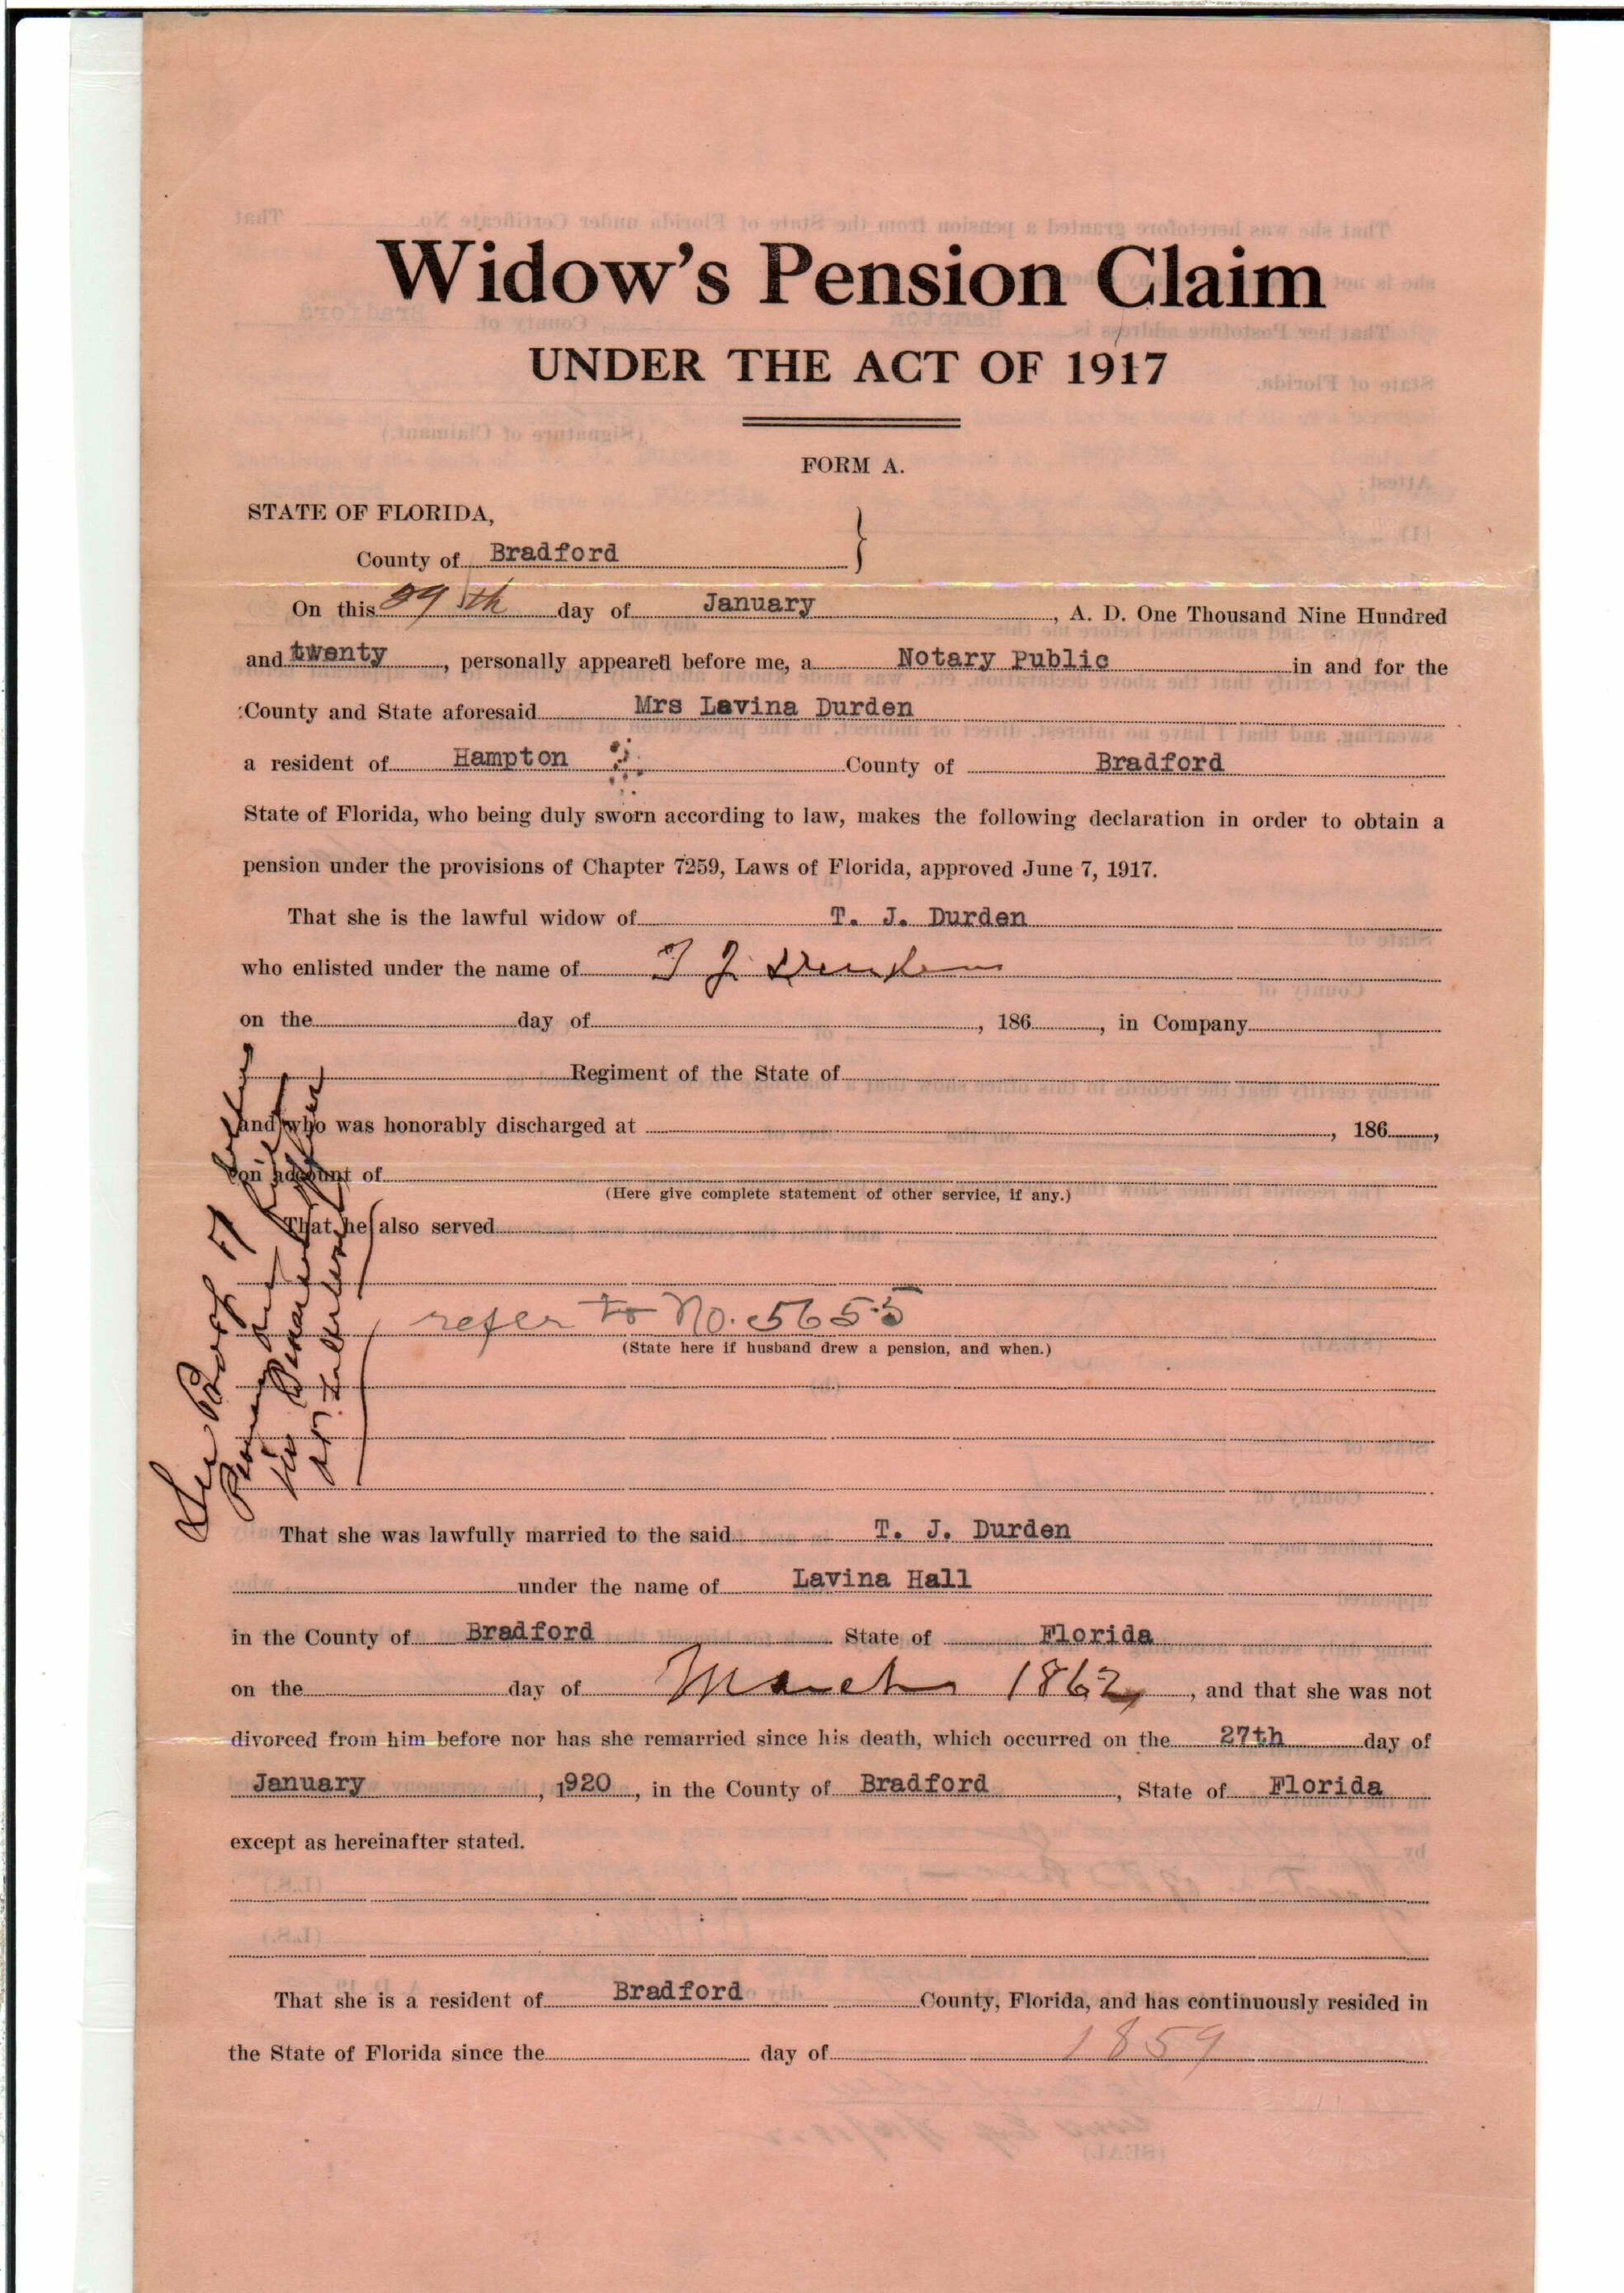 Widow's Pension Claim
UNDER THE ACT OF 1917
FORM A.
STATE OF FLORIDA,
County of Bradford
On this 29th day of January, A. D. One Thousand Nine Hundred
and twenty, personally appeared before me, a Notary Public in and for the
County and State aforesaid Mrs Lavina Durden
a resident of Hampton County of Bradford
State of Florida, who being duly sworn according to law, makes the following declaration in order to obtain a
pension under the provisions of Chapter 7259, Laws of Florida, approved June 7, 1917.
That she is the lawful widow of T. J. Durden
who enlisted under the name of T J Durden
on the day of , 186 , in Company
Regiment of the State of
and who was honorably discharged at , 186 ,
on account of
(Here give complete statement of other service, if any.)
That he also served
refer to No. 5655
(State here if husband drew a pension, and when.)
That she was lawfully married to the said T. J. Durden
under the name of Lavina Hall
in the County of Bradford State of Florida
on the day of March 1862, and that she was not
divorced from him before nor has she remarried since his death, which occurred on the 27th day of
January, 1920, in the County of Bradford, State of Florida
except as hereinafter stated.
That she is a resident of Bradford County, Florida, and has continuously resided in
the State of Florida since the day of 1859